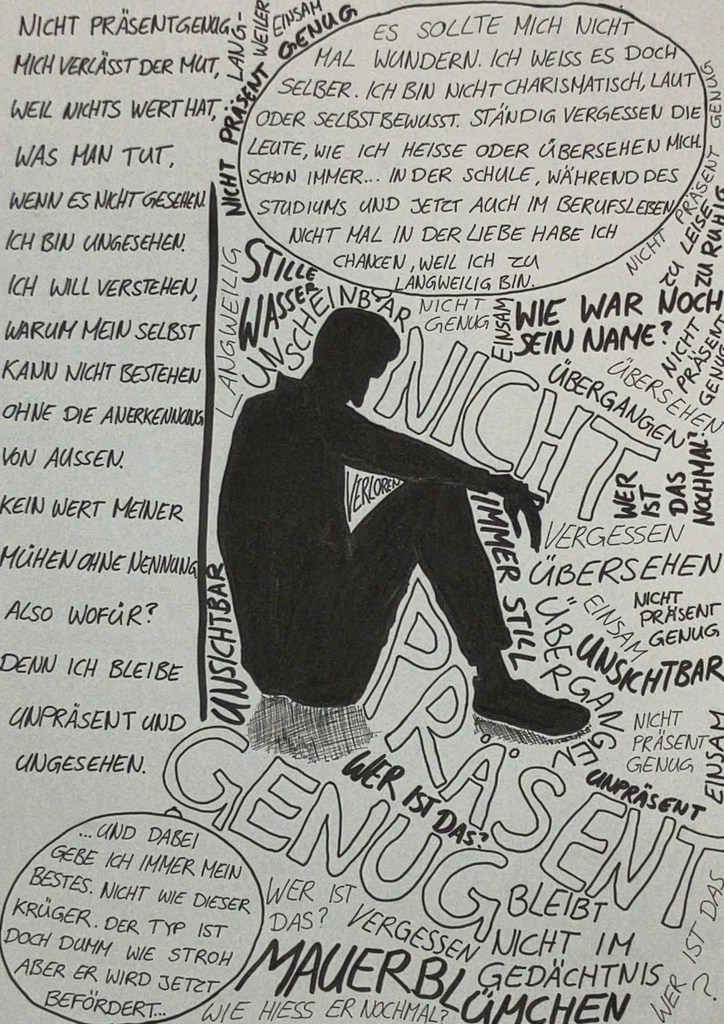 NICHT PRÄSENT GENUG,
MICH VERLÄSST DER MUT,
WEIL NICHTS WERT HAT,
WAS MAN TUT,
WENN ES NICHT GESEHEN.
ICH BIN UNGESEHEN.
ICH WILL VERSTEHEN,
WARUM MEIN SELBST
KANN NICHT BESTEHEN
OHNE DIE ANERKENNUNG
VON AUSSEN.
KEIN WERT MEINER
MÜHEN OHNE NENNUNG
ALSO WOFÜR?
DENN ICH BLEIBE
UNPRÄSENT UND
UNGESEHEN.
LANG-
WEILER
EINSAM
NICHT PRÄSENT GENUG
ES SOLLTE MICH NICHT
MAL WUNDERN. ICH WEISS ES DOCH
SELBER. ICH BIN NICHT CHARISMATISCH, LAUT
ODER SELBSTBEWUSST. STÄNDIG VERGESSEN DIE
LEUTE, WIE ICH HEISSE ODER ÜBERSEHEN MICH.
SCHON IMMER... IN DER SCHULE, WÄHREND DES
STUDIUMS UND JETZT AUCH IM BERUFSLEBEN
NICHT MAL IN DER LIEBE HABE ICH
CHANCEN, WEIL ICH ZU
LANGWEILIG BIN.
NICHT PRÄSENT GENUG
ZU LEISE
ZU RUHIG
LANGWEILIG
STILLE
WASSER
UNSCHEINBAR
NICHT
GENUG
EINSAM
WIE WAR NOCH
SEIN NAME?
NICHT
PRÄSENT
GENUG
ÜBERSEHEN
ÜBERGANGEN
NICHT
WER
IST
DAS
NOCHMAL?
VERLOREN
IMMER STILL
VERGESSEN
ÜBERSEHEN
NICHT
PRÄSENT
GENUG
EINSAM
ÜBERGANGEN
UNSICHTBAR
UNSICHTBAR
NICHT
PRÄSENT
GENUG
EINSAM
UNPRÄSENT
PRÄSENT
GENUG
WER IST
DAS?
...UND DABEI
GEBE ICH IMMER MEIN
BESTES. NICHT WIE DIESER
KRÜGER. DER TYP IST
DOCH DUMM WIE STROH
ABER ER WIRD JETZT
BEFÖRDERT...
WER IST
DAS?
VERGESSEN
BLEIBT
NICHT IM
GEDÄCHTNIS
MAUERBLÜMCHEN
WIE HIESS ER NOCHMAL?
WER IST DAS
?